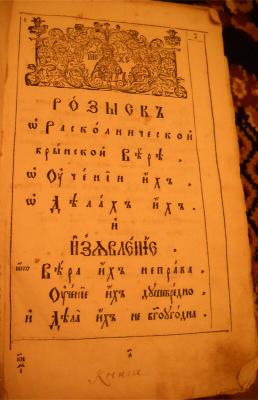 РО́ЗЫСКЪ
ѿ Раско́лнической
бры́нской Вѣ́рѣ ,
ѿ Оуче́нїи и҆́хъ ,
ѿ Дѣ́лахъ и҆́хъ .
И
И҆З̾ЯВЛЕ́НЇЕ ,
Вѣ́ра и҆́хъ непра́ва ,
Оуче́нїе и҆́хъ дꙋшевре́дно ,
и Дѣла̀ и҆́хъ не бг҃оуго́дна .
Книга